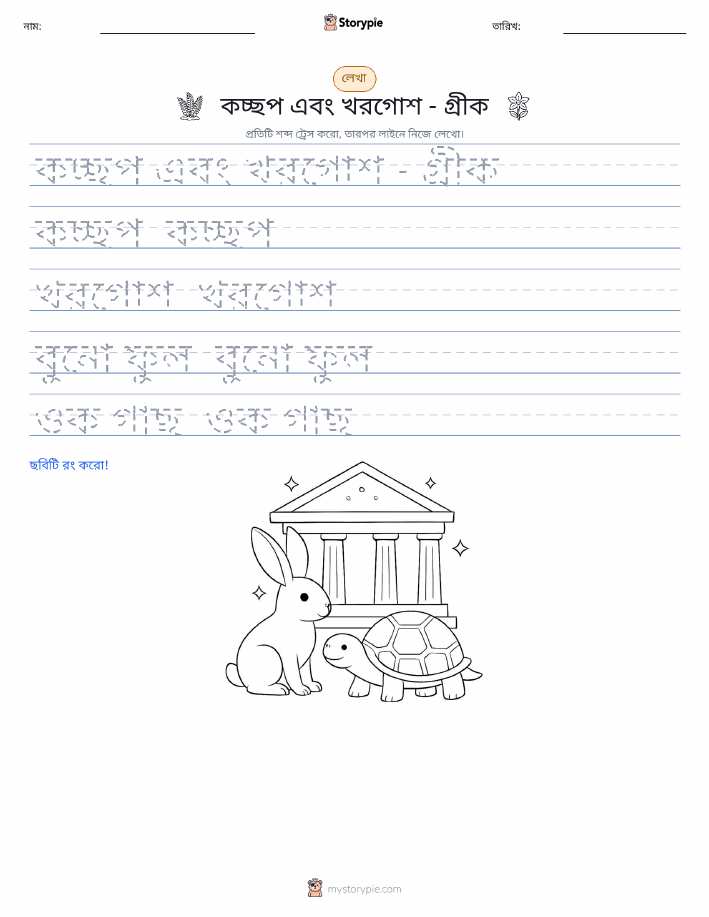 নাম:
Storypie
তারিখ:
লেখা
কচ্ছপ এবং খরগোশ - গ্রীক
প্রতিটি শব্দ ট্রেস করো, তারপর লাইনে নিজে লেখো।
কচ্ছপ এবং খরগোশ - গ্রীক
কচ্ছপ কচ্ছপ
খরগোশ খরগোশ
বুনো ফুল বুনো ফুল
ওক গাছ ওক গাছ
ছবিটি রং করো!
mystorypie.com